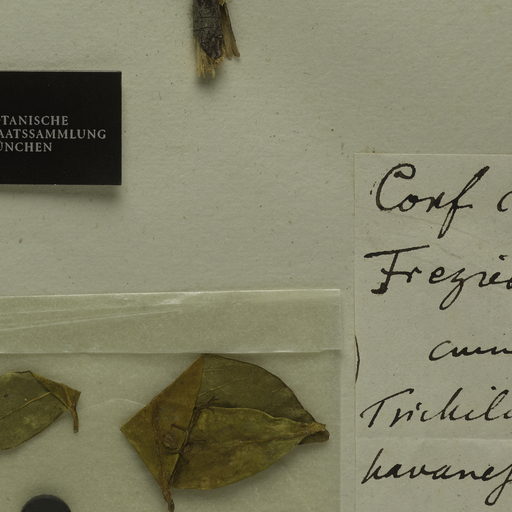 TANISCHE
AATSSAMMLUNG
ÜNCHEN
Conf
Frezie
cum
Trichil
havanes